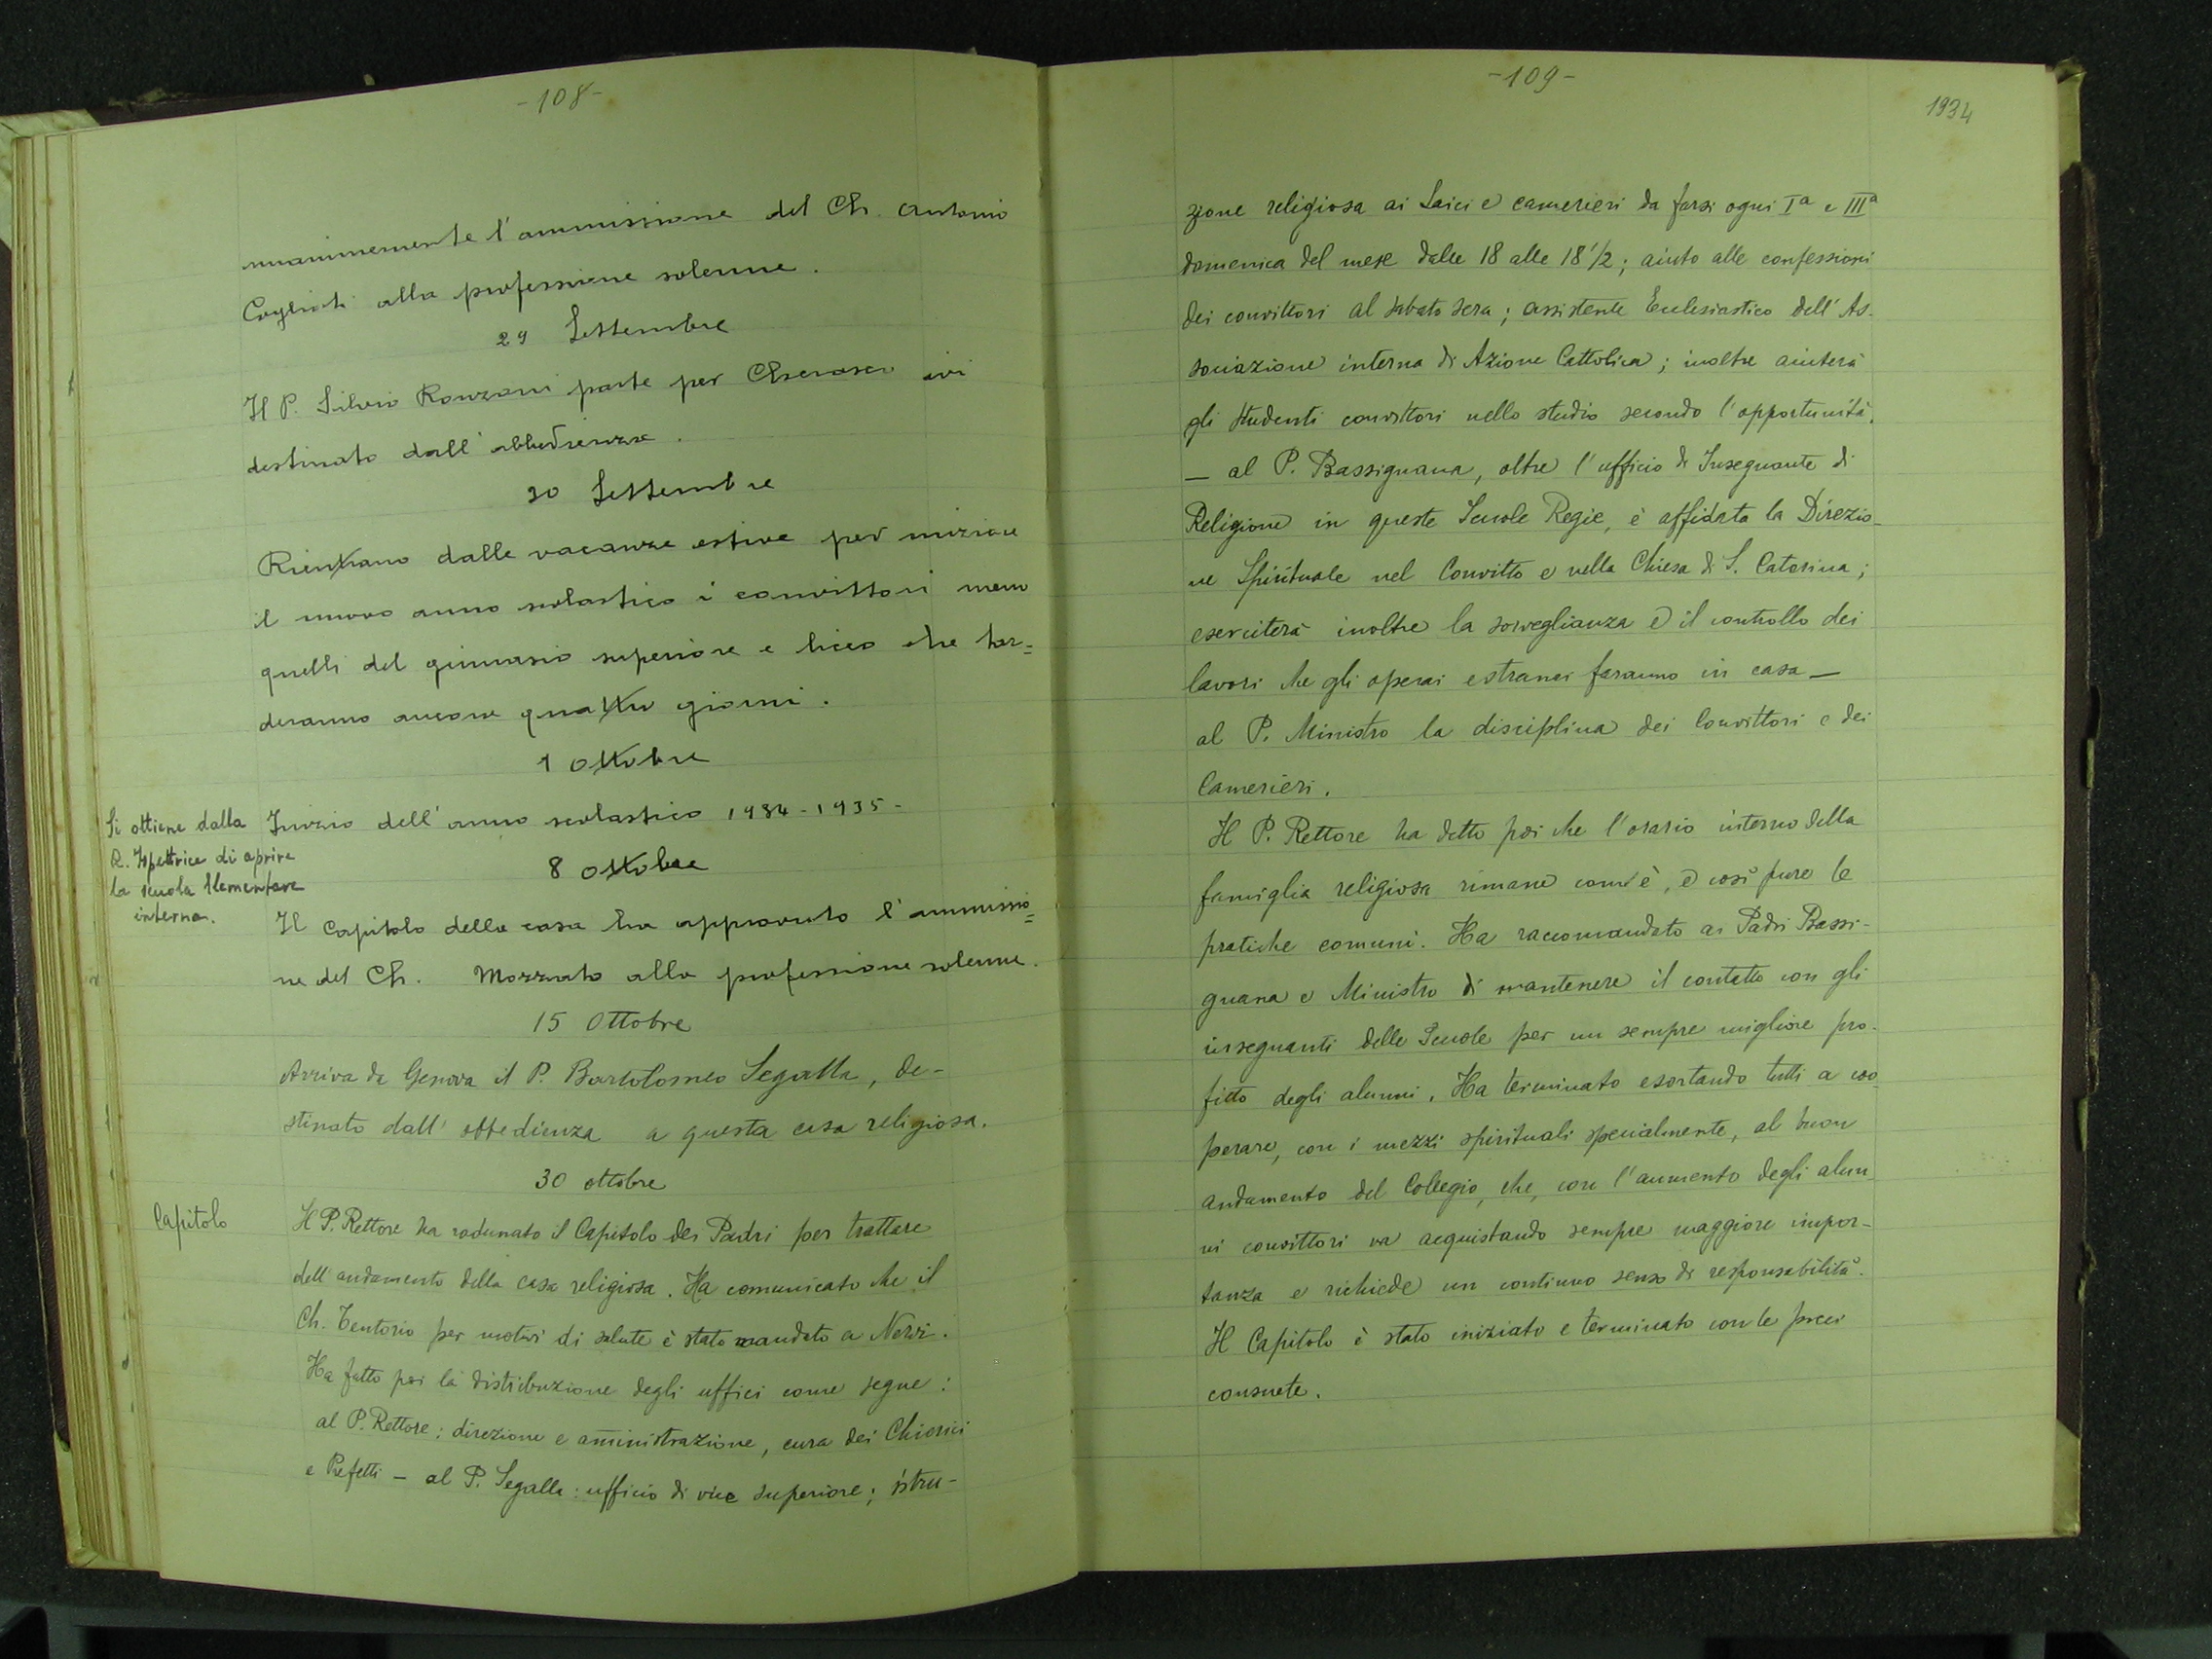 -108-
unanimemente l'ammissione del Ch. Antonio
Cogliati alla professione solenne.
29 Settembre
Il P. Silvio Ronzoni parte per Cherasco ivi
destinato dall'abbedienza.
30 Settembre
Rientrano dalle vacanze estive per iniziare
il nuovo anno scolastico i convittori meno
quelli del ginnasio superiore e liceo che tar=
deranno ancora quattro giorni.
1 Ottobre
Si ottiene dalla
R. Ispettrice di aprire
la scuola Elementare
interna.
Inizio dell'anno scolastico 1934-1935-
8 ottobre
Il Capitolo della casa ha approvato l'ammissio=
ne del Ch. Mozzato alla professione solenne.
15 Ottobre
Arriva da Genova il P. Bartolomeo Segalla, de-
stinato dall'obbedienza a questa casa religiosa.
30 ottobre
Capitolo
Il P. Rettore ha radunato il Capitolo dei Padri per trattare
dell'andamento della casa religiosa. Ha comunicato che il
Ch. Tentorio per motivi di salute è stato mandato a Nervi.
Ha fatto poi la distribuzione degli uffici come segue:
al P. Rettore: direzione e amministrazione, cura dei Chierici
e Prefetti – al P. Segalla: ufficio di vice superiore; istru-
-109-
1934
zione religiosa ai Laici e camerieri da farsi ogni Iª e IIIª
domenica del mese dalle 18 alle 18 1/2; aiuto alle confessioni
dei convittori al sabato sera; assistente Ecclesiastico dell'As-
sociazione interna di Azione Cattolica; inoltre aiuterà
gli studenti convittori nello studio secondo l'opportunità.
– al P. Bassignana, oltre l'ufficio di Insegnante di
Religione in queste Scuole Regie, è affidata la Direzio-
ne Spirituale nel Convitto e nella Chiesa di S. Caterina;
eserciterà inoltre la sorveglianza e il controllo dei
lavori che gli operai estranei faranno in casa –
al P. Ministro la disciplina dei Convittori e dei
Camerieri.
Il P. Rettore ha detto poi che l'orario interno della
famiglia religiosa rimane com'è, e così pure le
pratiche comuni. Ha raccomandato ai Padri Bassi-
gnana e Ministro di mantenere il contatto con gli
insegnanti delle Scuole per un sempre migliore pro-
fitto degli alunni. Ha terminato esortando tutti a coo
perare, con i mezzi spirituali specialmente, al buon
andamento del Collegio, che, con l'aumento degli alun
ni convittori va acquistando sempre maggiore impor-
tanza e richiede un continuo senso di responsabilità.
Il Capitolo è stato iniziato e terminato con le preci
consuete.